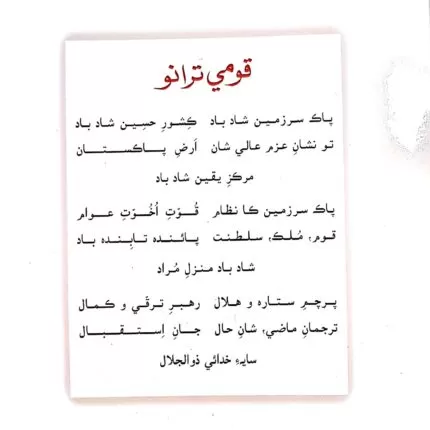 قومي ترانو
پاڪ سرزمين شاد باد ڪِشورِ حسِين شاد باد
تو نشانِ عزم عالي شان اَرضِ پاڪستان
مرڪزِ يقين شاد باد
پاڪ سرزمين ڪا نظام قُوّتِ اُخُوّتِ عوام
قوم، مُلڪ، سلطنت پائنده تابِنده باد
شاد باد منزلِ مُراد
پرچمِ ستاره و هلال رهبرِ ترقّي و ڪمال
ترجمانِ ماضي، شانِ حال جانِ اِستقبال
سايهءِ خدائي ذوالجلال